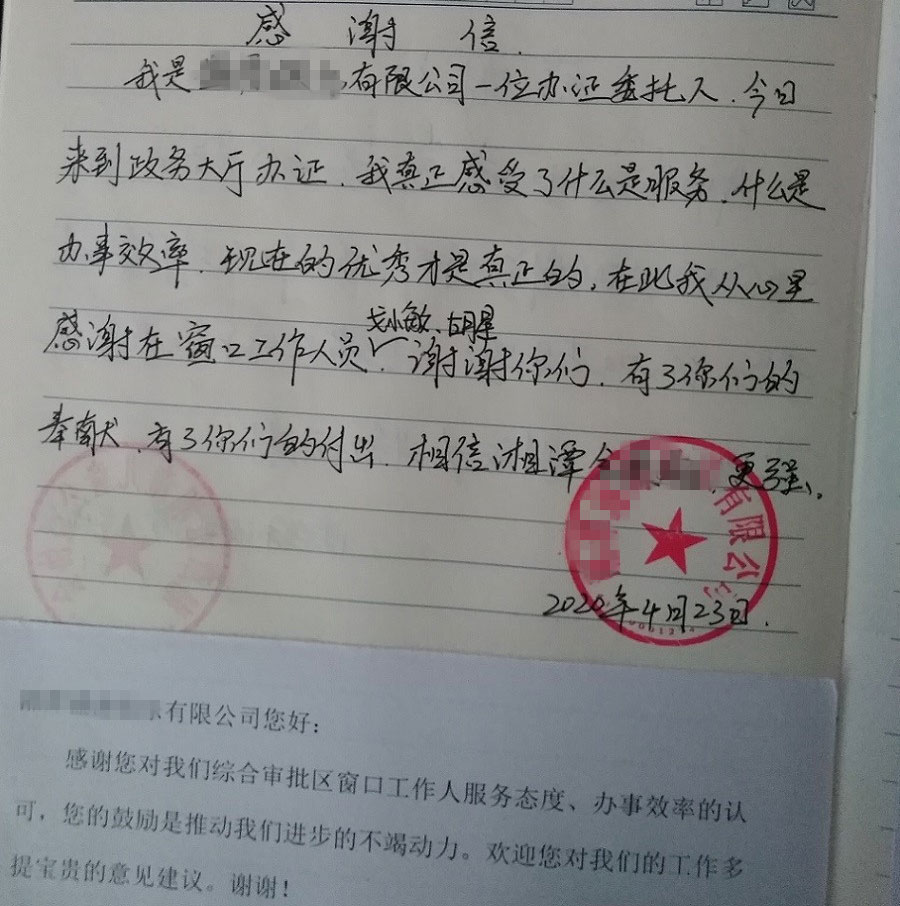 感谢信.
我是 有限公司一位办证委托人.今日
来到政务大厅办证.我真正感受了什么是服务.什么是
办事效率.现在的优秀才是真正的,在此我从心里
戈小敏.胡星
感谢在窗口工作人员.谢谢你们.有了你们的
奉献.有了你们的付出.相信湘潭 更强。
有限公司
2020年4月23日.
有限公司您好:
感谢您对我们综合审批区窗口工作人服务态度、办事效率的认
可,您的鼓励是推动我们进步的不竭动力。欢迎您对我们的工作多
提宝贵的意见建议。谢谢!